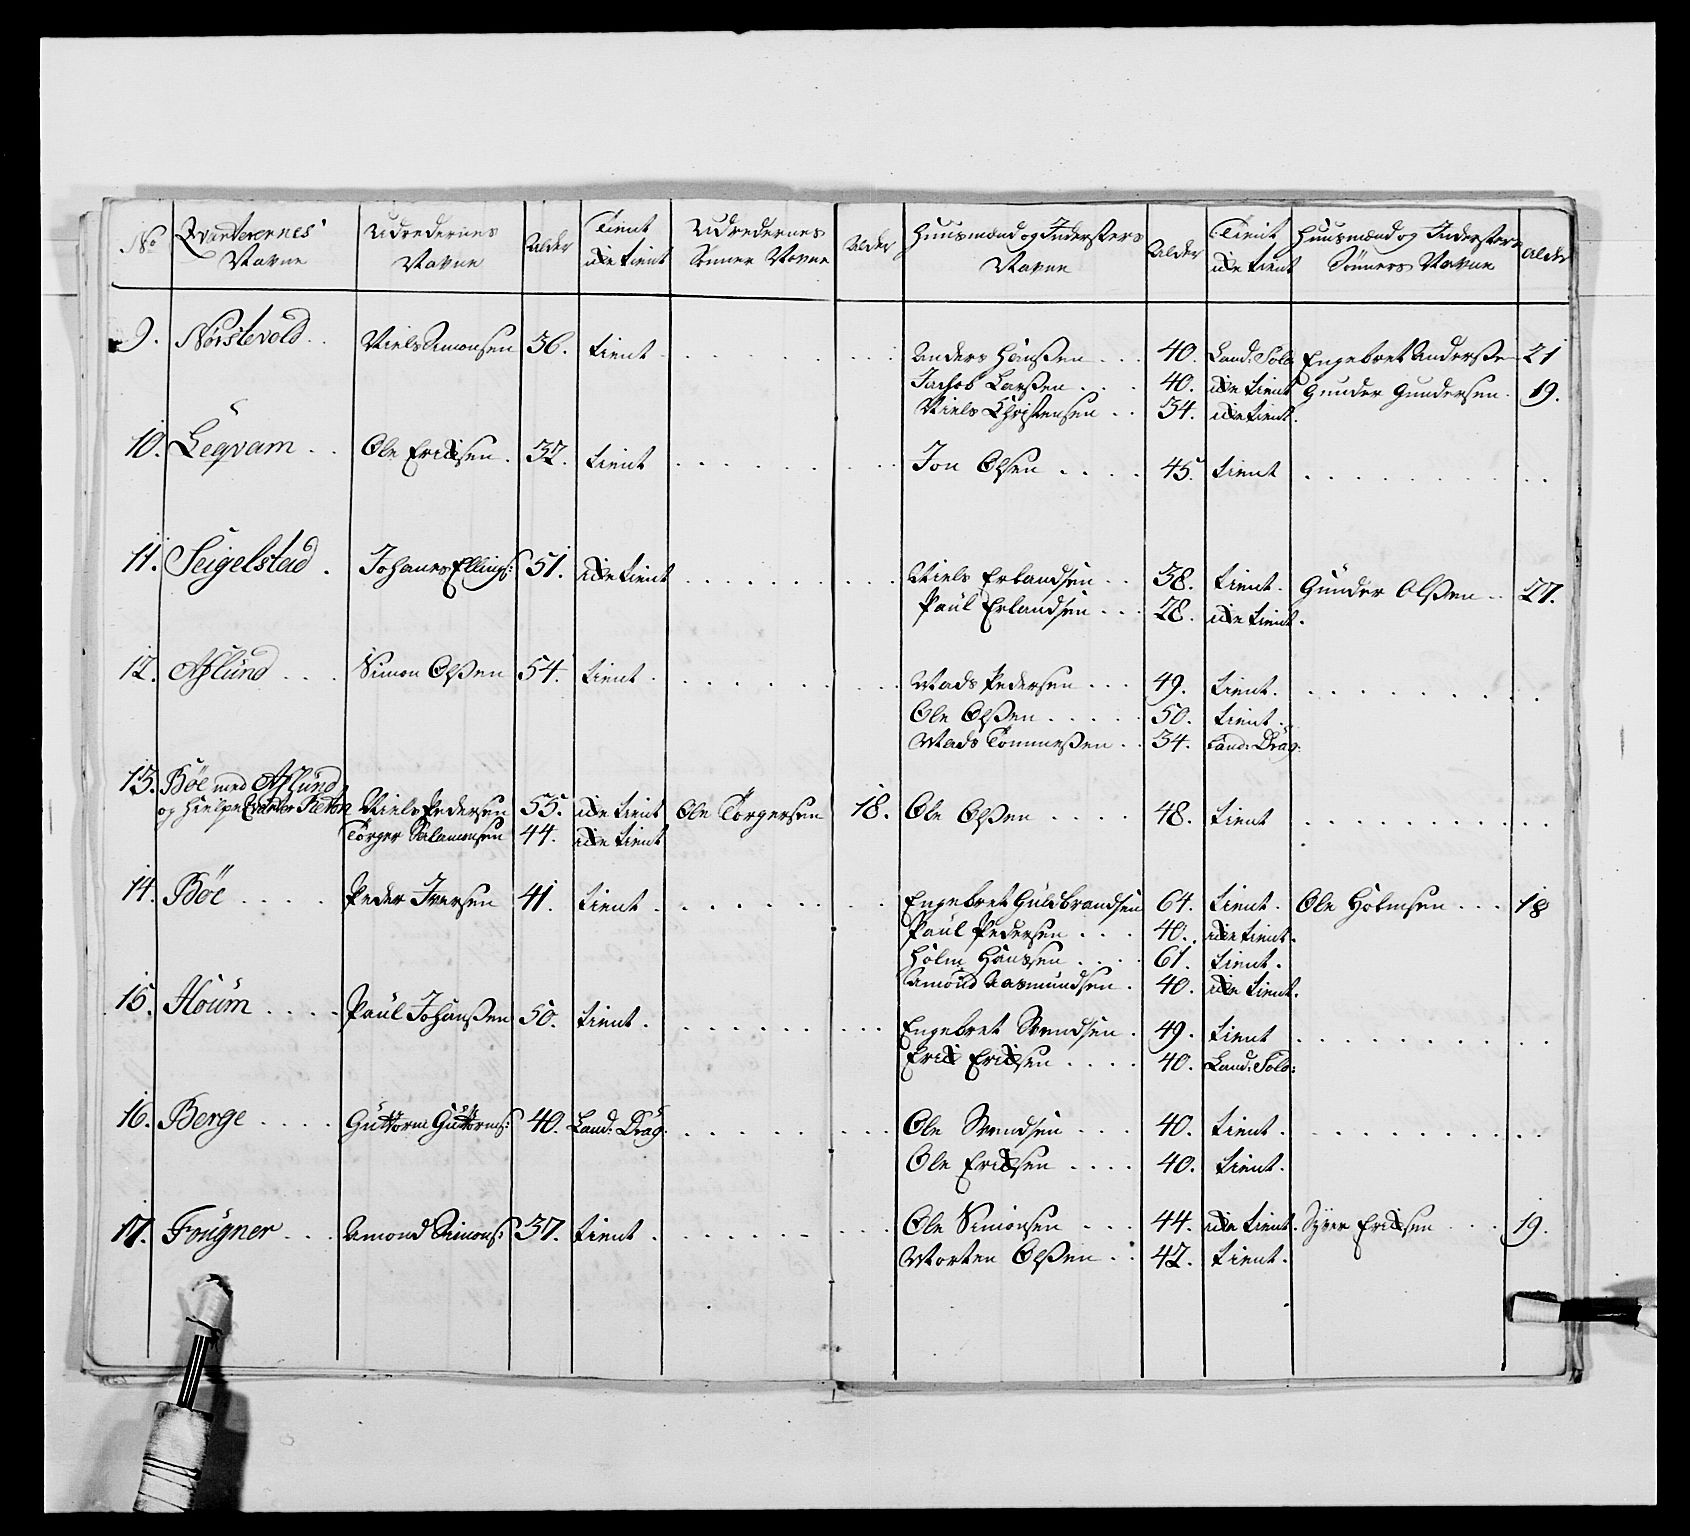 No | Qvarterernes Navne | Udredernes Navne | Alder | Tient icke tient | Udredernes Sönner Navne | Alder | Huusmænd og Inderstes Navne | Alder | Tient icke tient | Huusmænd og Inderstes Sönners Navne | Alder
9. Nörstevold . . | Niels Simonsen | 36. | tient | . . . | . . . | Anders Hansen . . . | 40. | Land: Sold: | Engebret Anderse | 21
Jachob Larsen . . . | 40. | icke tient | Gunder Gundersen . | 19.
Niels Christensen . . | 34. | icke tient.
10. Legvam . . | Ole Ericksen . | 32. | tient | . . . | . . . | Jon Olsen . . . . | 45. | tient | . . .
11. Seigelstad . | Johanes Ellings: | 51. | icke tient | . . . | . . . | Niels Erlandsen . . | 38. | tient. | Gunder Olsen . . | 27.
Paul Erlandsen . . . | 28. | icke tient.
12. Aslund . . . | Simon Olsen | 54. | tient. | . . . | . . . | Mads Pedersen . . . | 49. | tient. | . . .
Ole Olsen . . . . . | 50. | tient.
Mads Tommesen . . | 34. | Land: Drag:
13. Böe med Aslund
og Hielpe Qvarter | Niels Pedersen | 55. | icke tient | Ole Torgersen | 18. | Ole Olsen . . . . | 48. | tient | . . .
Torger Salamonsen | 44. | icke tient
14. Böe . . . . | Peder Iversen | 41. | tient. | . . . | . . . | Engebret Guldbrandsen | 64. | tient. | Ole Holmsen . . . | 18
Paul Pedersen . . . | 40. | icke tient.
Holm Hansen . . . . | 61. | tient.
Amund Rasmundsen . | 40. | icke tient.
15. Houm . . . . | Paul Johansen | 50. | tient. | . . . | . . . | Engebret Svendsen . | 49. | tient | . . .
Erick Ericksen . . . . | 40. | Land: Sold:
16. Berge . . . . | Guttorm Guttorms: | 40. | Land: Drag. | . . . | . . . | Ole Svendsen . . . | 40. | tient. | . . .
Ole Ericksen . . . . | 40. | tient.
17. Frugner . . . | Amond Simons: | 37. | tient. | . . . | . . . | Ole Simonsen . . . | 44. | icke tient. | Syver Ericksen . . . | 19.
Morten Olsen . . | 42. | tient.